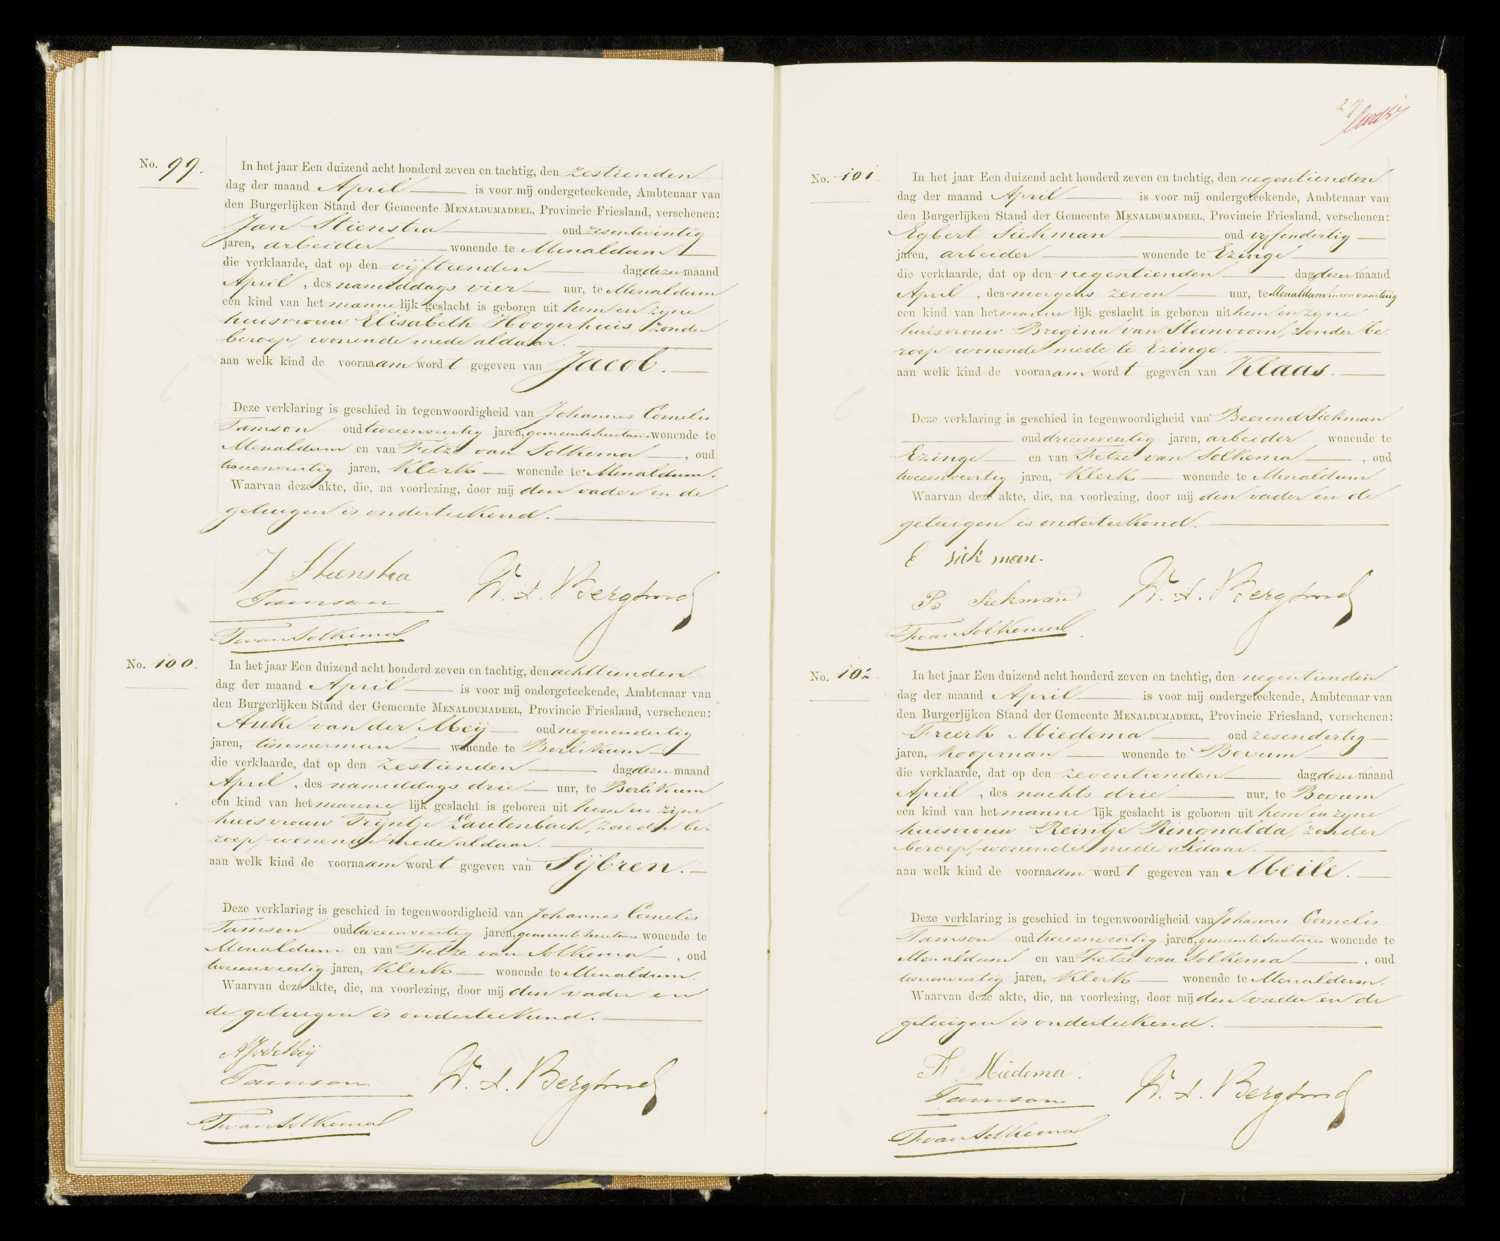 No. 99.
In het jaar Een duizend acht honderd zeven en tachtig, den zestienden
dag der maand April is voor mij ondergeteekende, Ambtenaar van
den Burgerlijken Stand der Gemeente MENALDUMADEEL, Provincie Friesland, verschenen:
Jan Stienstra oud zesentwintig
jaren, arbeider wonende te Menaldum
die verklaarde, dat op den vijftienden dag dezer maand
April, des namiddags vier uur, te Menaldum
een kind van het mannelijk geslacht is geboren uit hem en zijne
huisvrouw Elisabeth Hoogerhuis zonder
beroep wonende mede aldaar.
aan welk kind de voornaam wordt gegeven van Jacob.
Deze verklaring is geschied in tegenwoordigheid van Johannes Cornelis
Tamson oud tweeenveertig jaren, gemeente Secretaris wonende te
Menaldum en van Fetze van Solkema, oud
tweeenveertig jaren, Klerk wonende te Menaldum.
Waarvan deze akte, die, na voorlezing, door mij den vader en de
getuigen is onderteekend.
J Stienstra
Tamson
W. A. Bergsma
F van Solkema
No. 100.
In het jaar Een duizend acht honderd zeven en tachtig, den achttienden
dag der maand April is voor mij ondergeteekende, Ambtenaar van
den Burgerlijken Stand der Gemeente MENALDUMADEEL, Provincie Friesland, verschenen:
Auke van der Meij oud negenendertig
jaren, timmerman wonende te Berlikum
die verklaarde, dat op den zestienden dag dezer maand
April, des namiddags drie uur, te Berlikum
een kind van het mannelijk geslacht is geboren uit hem en zijne
huisvrouw Trijntje Lautenbach, zonder be-
roep wonende mede aldaar.
aan welk kind de voornaam wordt gegeven van Sijbren.
Deze verklaring is geschied in tegenwoordigheid van Johannes Cornelis
Tamson oud tweeenveertig jaren, gemeente Secretaris wonende te
Menaldum en van Fetze van Solkema, oud
tweeenveertig jaren, Klerk wonende te Menaldum.
Waarvan deze akte, die, na voorlezing, door mij den vader en
de getuigen is onderteekend.
Tamson
W. A. Bergsma
F van Solkema
No. 101
In het jaar Een duizend acht honderd zeven en tachtig, den negentienden
dag der maand April is voor mij ondergeteekende, Ambtenaar van
den Burgerlijken Stand der Gemeente MENALDUMADEEL, Provincie Friesland, verschenen:
Egbert Siekman oud vijfendertig
jaren, arbeider wonende te Ezinge
die verklaarde, dat op den negentienden dag dezer maand
April, des morgens zeven uur, te Menaldum
een kind van het mannelijk geslacht is geboren uit hem en zijne
huisvrouw Bregina van Steenvoorn, zonder be
roep wonende mede te Ezinge.
aan welk kind de voornaam wordt gegeven van Klaas.
Deze verklaring is geschied in tegenwoordigheid van Beerend Siekman
oud drieenveertig jaren, arbeider wonende te
Ezinge en van Fetze van Solkema, oud
tweeenveertig jaren, Klerk wonende te Menaldum
Waarvan deze akte, die, na voorlezing, door mij den vader en de
getuigen is onderteekend.
E Siek man.
B Siekman
W. A. Bergsma
F van Solkema
No. 102
In het jaar Een duizend acht honderd zeven en tachtig, den negentienden
dag der maand April is voor mij ondergeteekende, Ambtenaar van
den Burgerlijken Stand der Gemeente MENALDUMADEEL, Provincie Friesland, verschenen:
Freerk Miedema oud zesendertig
jaren, koopman wonende te Boxum
die verklaarde, dat op den zeventienden dag dezer maand
April, des nachts drie uur, te Boxum
een kind van het mannelijk geslacht is geboren uit hem en zijne
huisvrouw Reintje Ringnalda, zonder
beroep, wonende mede aldaar.
aan welk kind de voornaam wordt gegeven van Meile.
Deze verklaring is geschied in tegenwoordigheid van Johannes Cornelis
Tamson oud tweeenveertig jaren, gemeente Secretaris wonende te
Menaldum en van Fetze van Solkema, oud
tweeenveertig jaren, Klerk wonende te Menaldum.
Waarvan deze akte, die, na voorlezing, door mij den vader en de
getuigen is onderteekend.
F. Miedema.
Tamson
W. A. Bergsma
F van Solkema